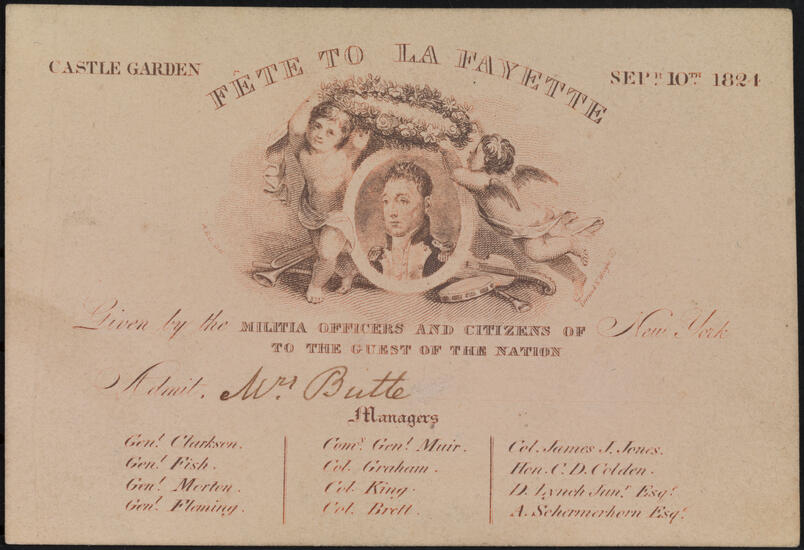 CASTLE GARDEN
FÊTE TO LA FAYETTE
SEPR. 10TH. 1824
Given by the MILITIA OFFICERS AND CITIZENS OF New York
TO THE GUEST OF THE NATION
Admit. Mrs Butte
Managers
Genl. Clarkson.
Genl. Fish.
Genl. Morton.
Genl. Fleming.
Comy. Genl. Muir.
Col. Graham.
Col. King.
Col. Brett.
Col. James J. Jones.
Hon. C. D. Colden.
D. Lynch Junr. Esqr.
A. Schermerhorn Esqr.